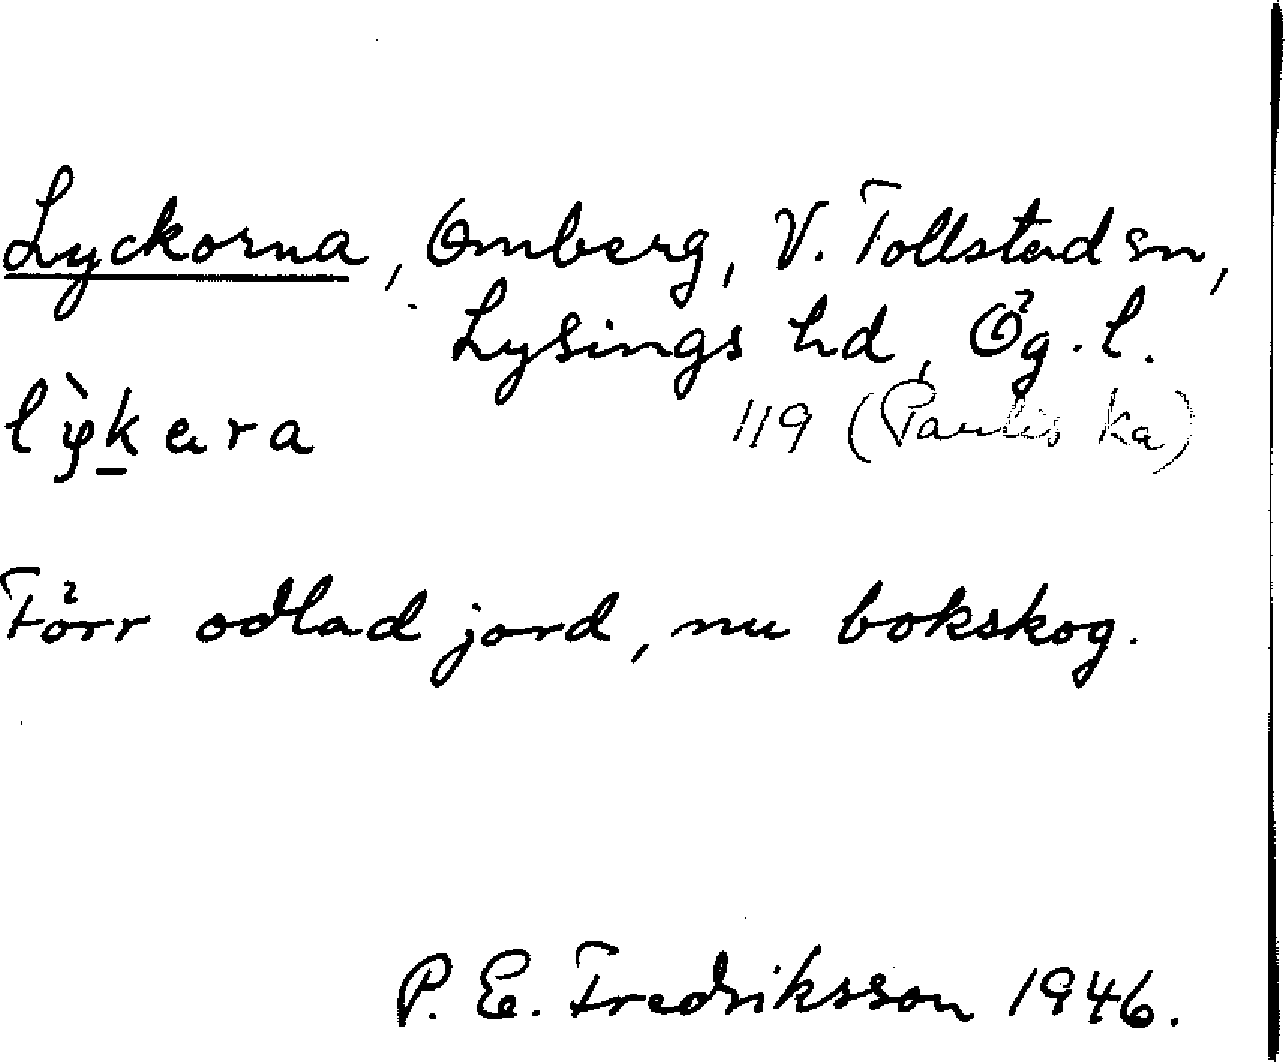 Lyckorna, Omberg, V. Tollstad sn,
Lysings hd, Ög. l.
lỳk̲ara 119 (Paulis ka)
Förr odlad jord, nu bokskog.
P. E. Fredriksson 1946.